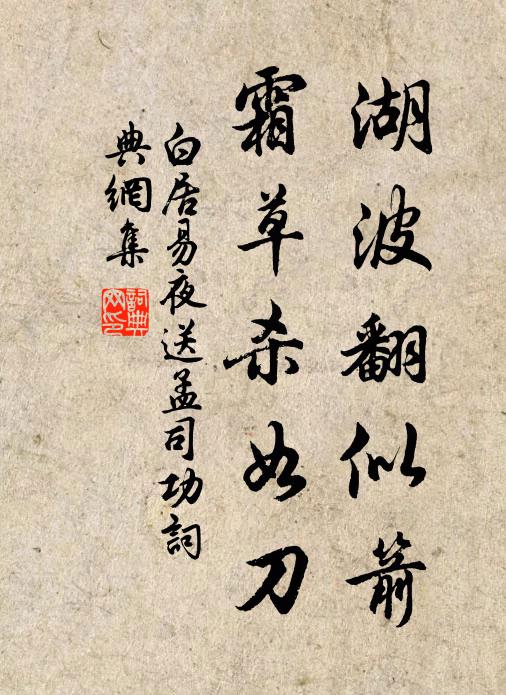 湖波翻似箭
霜草杀如刀
白居易夜送孟司功詞
典網集
詞典
网印